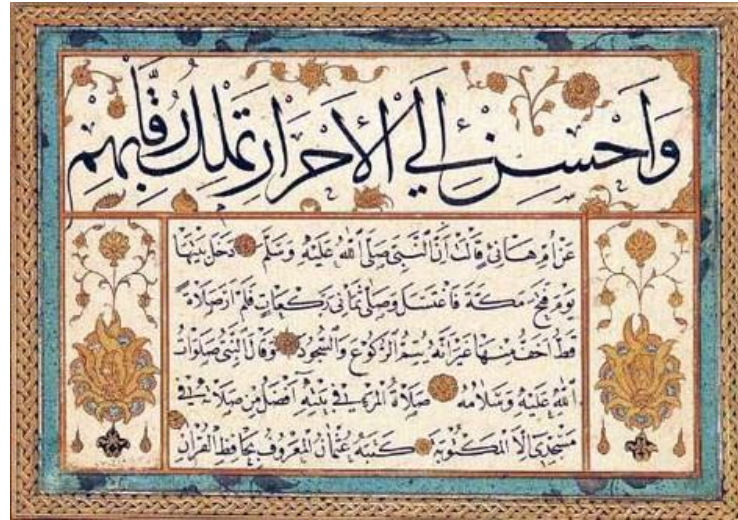 وَاَحْسِنْ إِلَي الْأَحْرَارِ تَمْلِكْ رِقَابَهُمْ
عَنْ اُمِّ هَانِئٍ قَالَتْ اِنَّ النَّبِيَّ صَلَّي اللّٰهُ عَلَيْهِ وَسَلَّمَ دَخَلَ بَيْتَهَا
يَوْمَ فَتْحِ مَكَّةَ فَاغْتَسَلَ وَصَلَّي ثَمَانِيَ رَكَعَاتٍ فَلَمْ اَرَ صَلَاةً
قَطُّ اَخَفَّ مِنْهَا غَيْرَ اَنَّهُ يُتِمُّ الرُّكُوعَ وَالسُّجُودَ وَقَالَ النَّبِيُّ صَلَوَاتُ
اللّٰهِ عَلَيْهِ وَسَلَامُهُ صَلَاةُ الْمَرْءِ فِي بَيْتِهِ اَفْضَلُ مِنْ صَلَاتِهِ فِي
مَسْجِدِي اِلَّا الْمَكْتُوبَةَ كَتَبَهُ عُثْمَانُ الْمَعْرُوفُ بِحَافِظِ الْقُرْاٰنِ